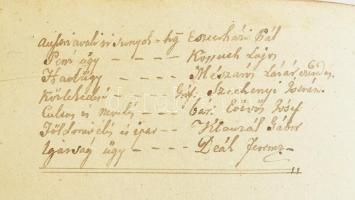 hg Eszterházi Pál
Penz ügy - - - - Kossuth Lajos
Hadügy - - - - Mészáros Lázár
Közlekedési Gróf. Szechenyi Istvan.
Cultus és nevelés - - Bár. Eötvös Jósef
Földmivelés és ipar - - Klauzál Gábor
Igasság ügy - - - - Deák Ferencz